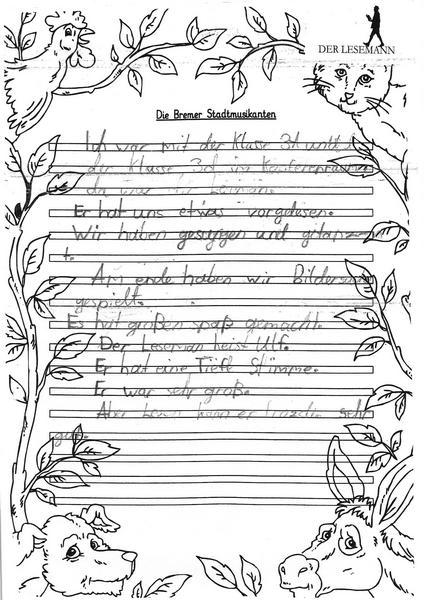 DER LESEMANN
Die Bremer Stadtmusikanten
Ich war mit der Klase 3d
der Klasse 3d im
da war
Er hat uns etwas vorgelesen.
Wir haben gesungen und
t.
Am ende haben wir
gespielt.
Es hat großen spaß gemacht.
Der Leseman heist Ulf.
Er hat eine Tiefe Stimme.
Er war sehr groß.
Aber kann er trozdem sehr
gut.